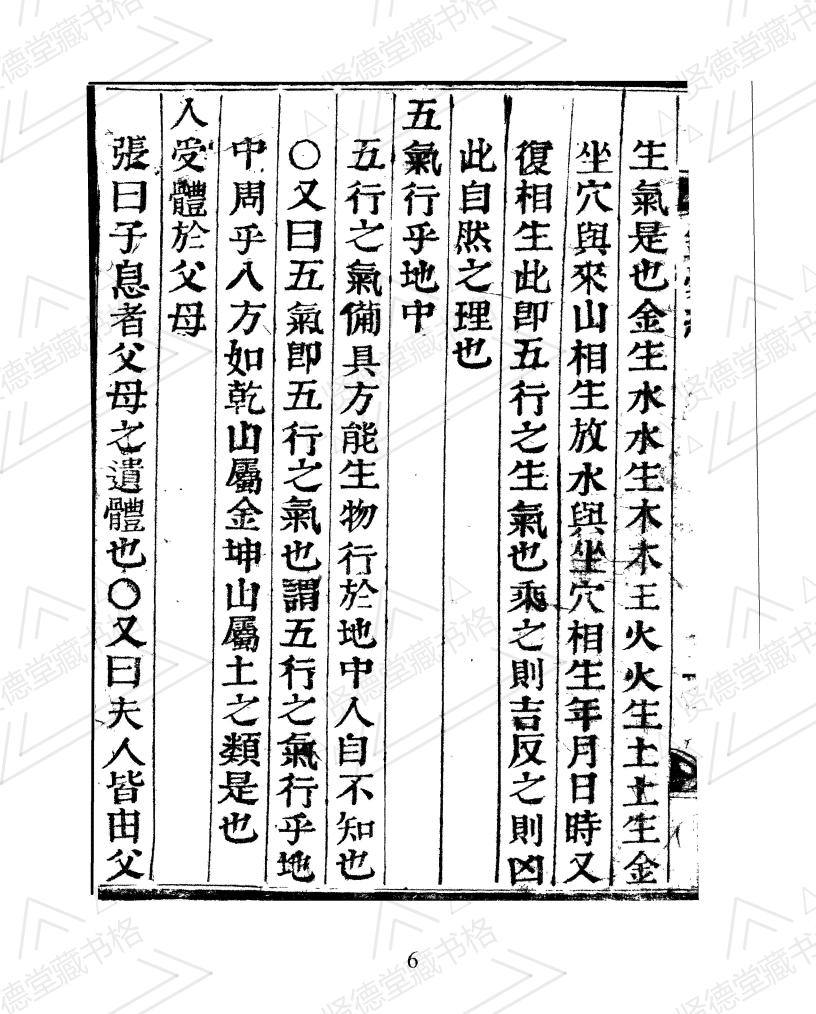 生氣是也金生水水生木木王火火生土土生金
坐穴與來山相生放水與坐穴相生年月日時又
復相生此即五行之生氣也乘之則吉反之則凶
此自然之理也
五氣行乎地中
五行之氣備具方能生物行於地中人自不知也
〇又曰五氣即五行之氣也謂五行之氣行乎地
中周乎八方如乾山屬金坤山屬土之類是也
人受體於父母
張曰子息者父母之遺體也〇又曰夫人皆由父
6
贤德堂藏书格